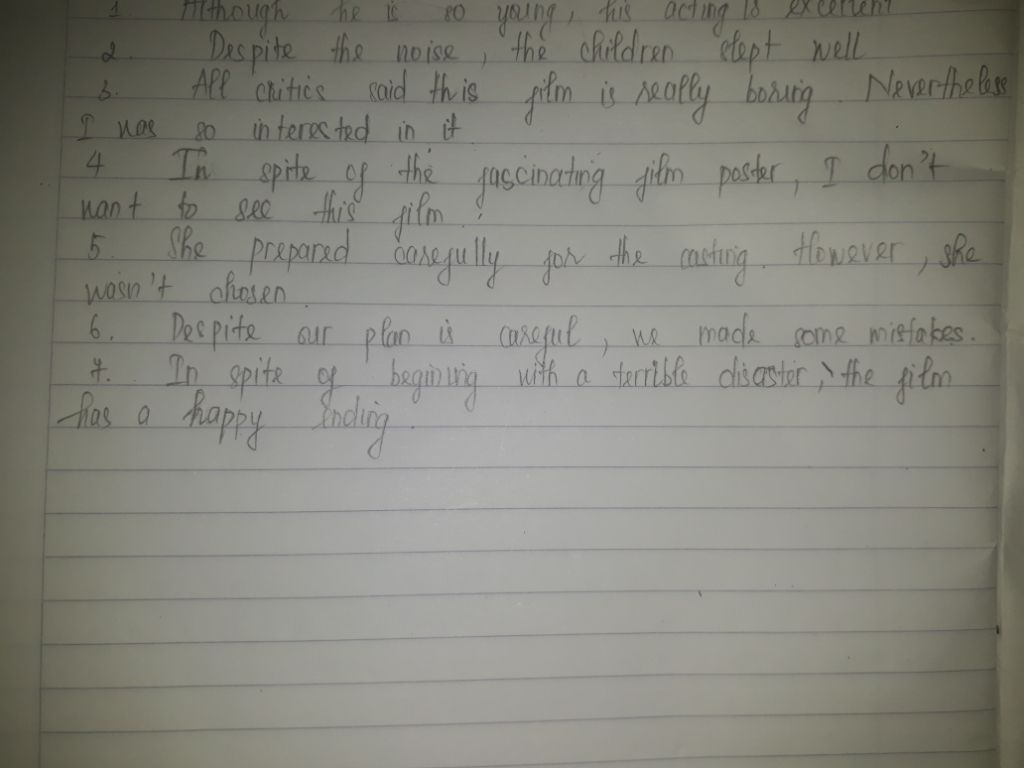 1. Although he is so young, his acting is excellent
2. Despite the noise, the children slept well
3. All critics said this film is really boring. Nevertheless
I was so interested in it
4 In spite of the fascinating film poster, I don't
want to see this film.
5. She prepared carefully for the casting. However, she
wasn't chosen.
6. Despite our plan is careful, we made some mistakes.
7. In spite of begining with a terrible disaster, the film
has a happy ending.